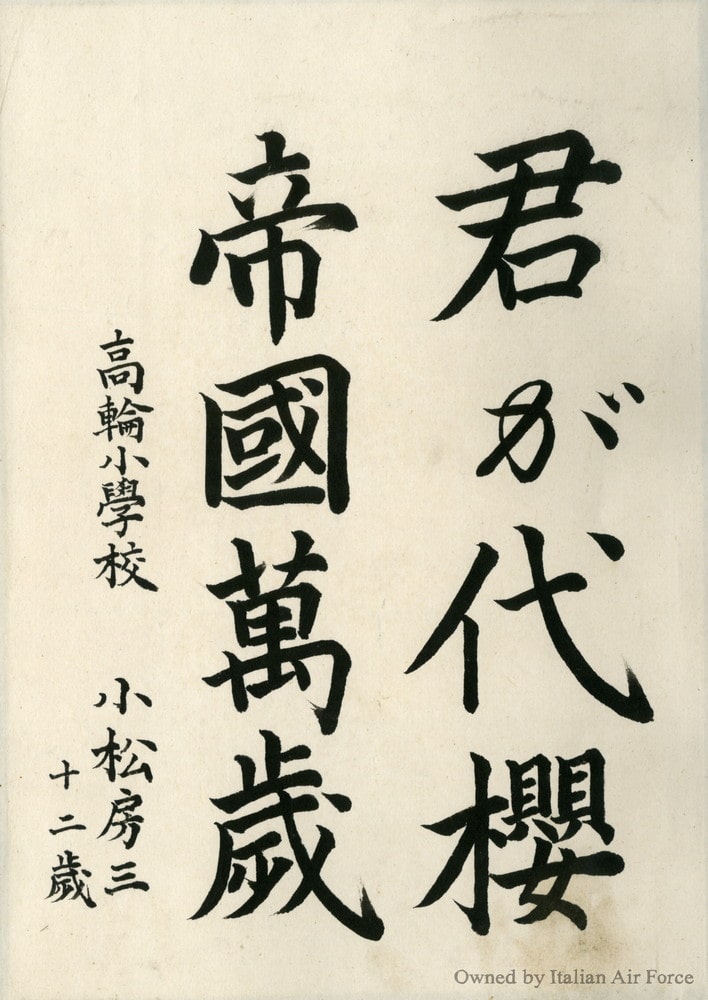 君が代櫻
帝國萬歲
高輪小學校 小松房三
十二歲
Owned by Italian Air Force